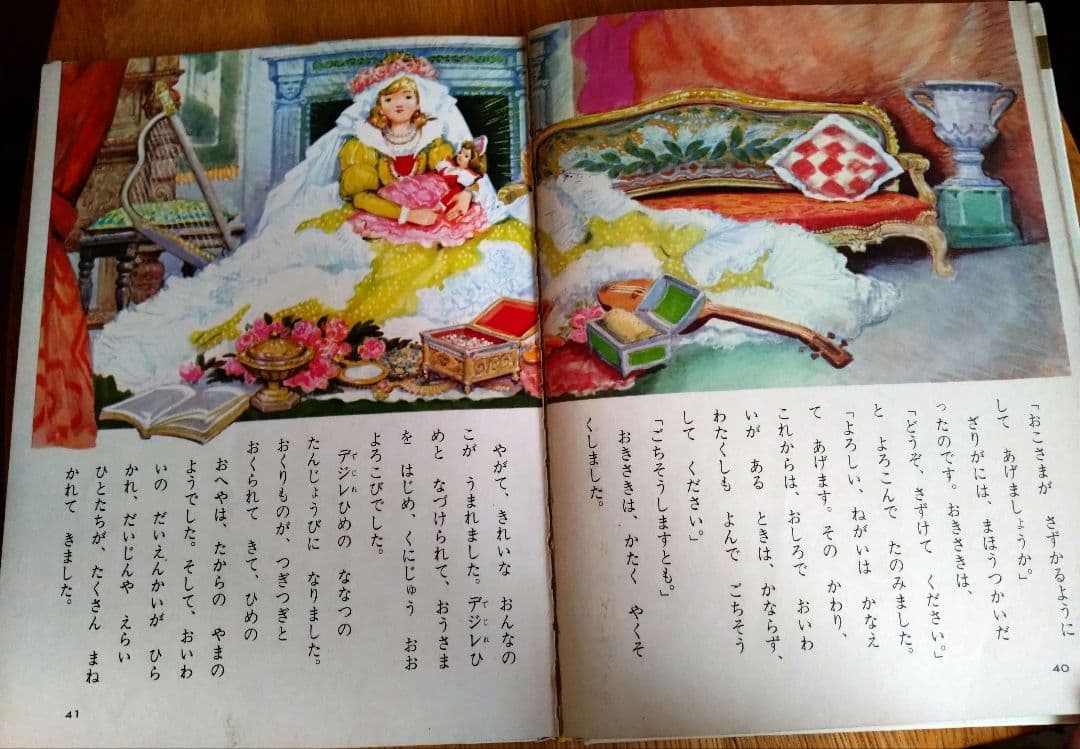 「おこさまが　さずかるように
して　あげましょうか。」
ざりがには、まほうつかいだ
ったのです。おきさきは、
「どうぞ、さずけて　ください。」
と　よろこんで　たのみました。
「よろしい、ねがいは　かなえ
て　あげます。その　かわり、
これからは、おしろで　おいわ
いが　ある　ときは、かならず、
わたくしも　よんで　ごちそう
して　ください。」
「ごちそうしますとも。」
おきさきは、かたく　やくそ
くしました。
40
やがて、きれいな　おんなの
こが　うまれました。デジレひ
めと　なづけられて、おうさま
を　はじめ、くにじゅう　おお
よろこびでした。
デジレひめの　ななつの
たんじょうびに　なりました。
おくりものが、つぎつぎと
おくられて　きて、ひめの
おへやは、たからの　やまの
ようでした。そして、おいわ
いの　だいえんかいが　ひら
かれ、だいじんや　えらい
ひとたちが、たくさん　まね
かれて　きました。
41